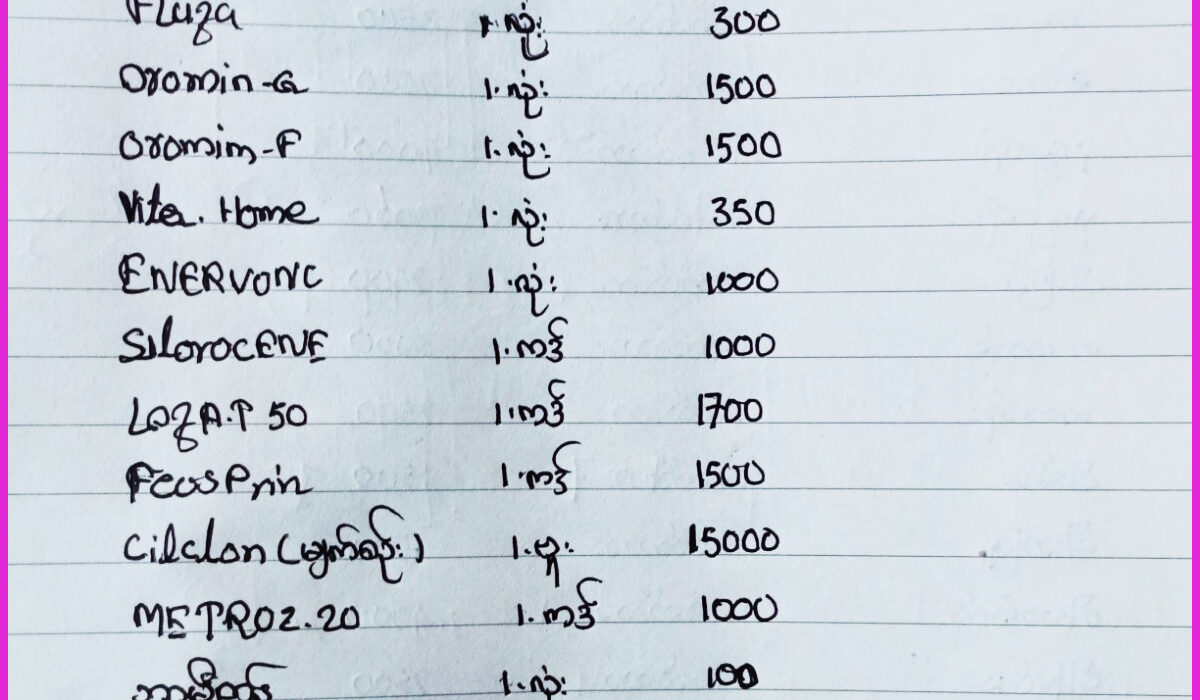 Fluza ၁.လုံး 300
Oromin-G ၁.လုံး 1500
Oromin-F ၁.လုံး 1500
Vita. Home ၁.လုံး 350
ENERVONC ၁.လုံး 1000
SiloroCENE ၁.ကဒ် 1000
LOZA.P 50 ၁.ကဒ် 1700
FeosPrin ၁.ကဒ် 1500
Cilclon (မျက်စဉ်း) ၁.ဗူး 15000
METROZ.20 ၁.ကဒ် 1000
၁.လုံး 100